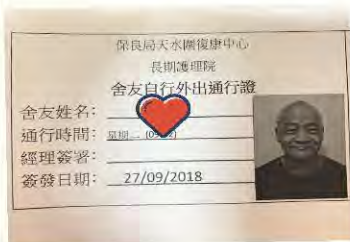 保良局天水圍復康中心
長期護理院
舍友自行外出通行證
舍友姓名:
通行時間: 星期
經理簽署:
簽發日期: 27/09/2018